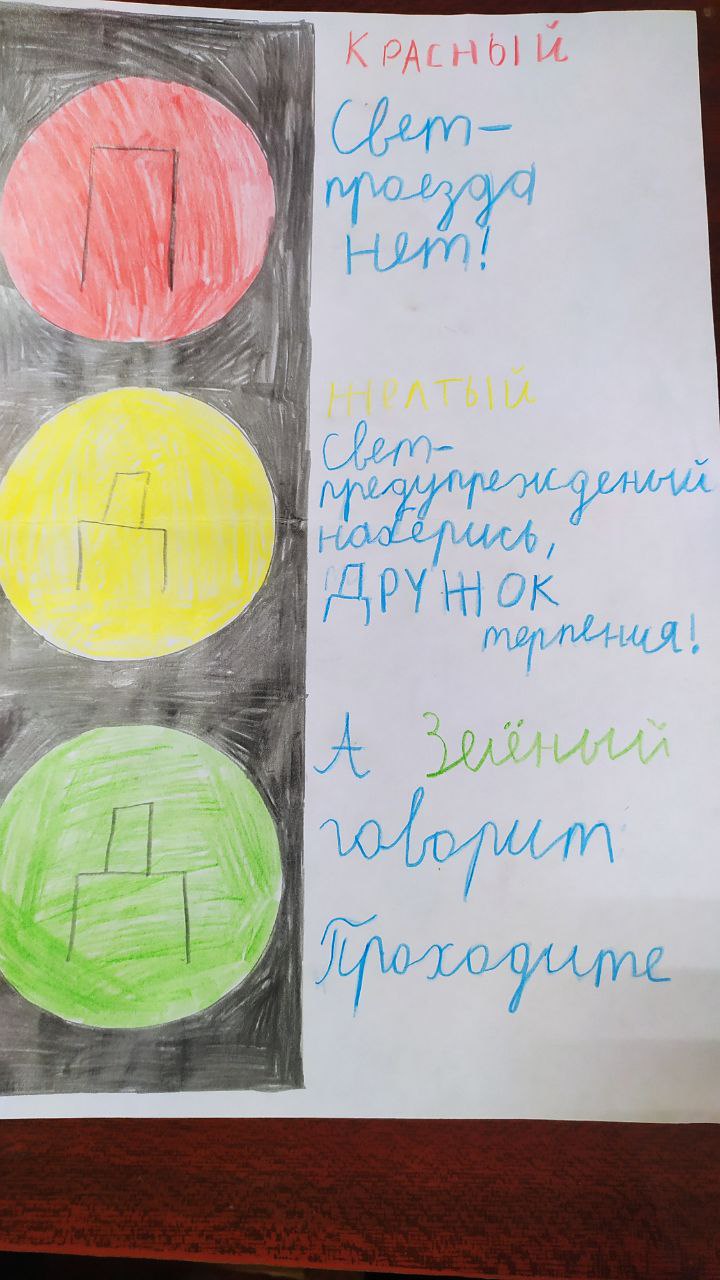 КРАСНЫЙ
Свет-
проезда
нет!
ЖЕЛТЫЙ
Свет-
предупрежденый
наберись,
ДРУЖОК
терпения!
А Зелёный
говорит
Проходите